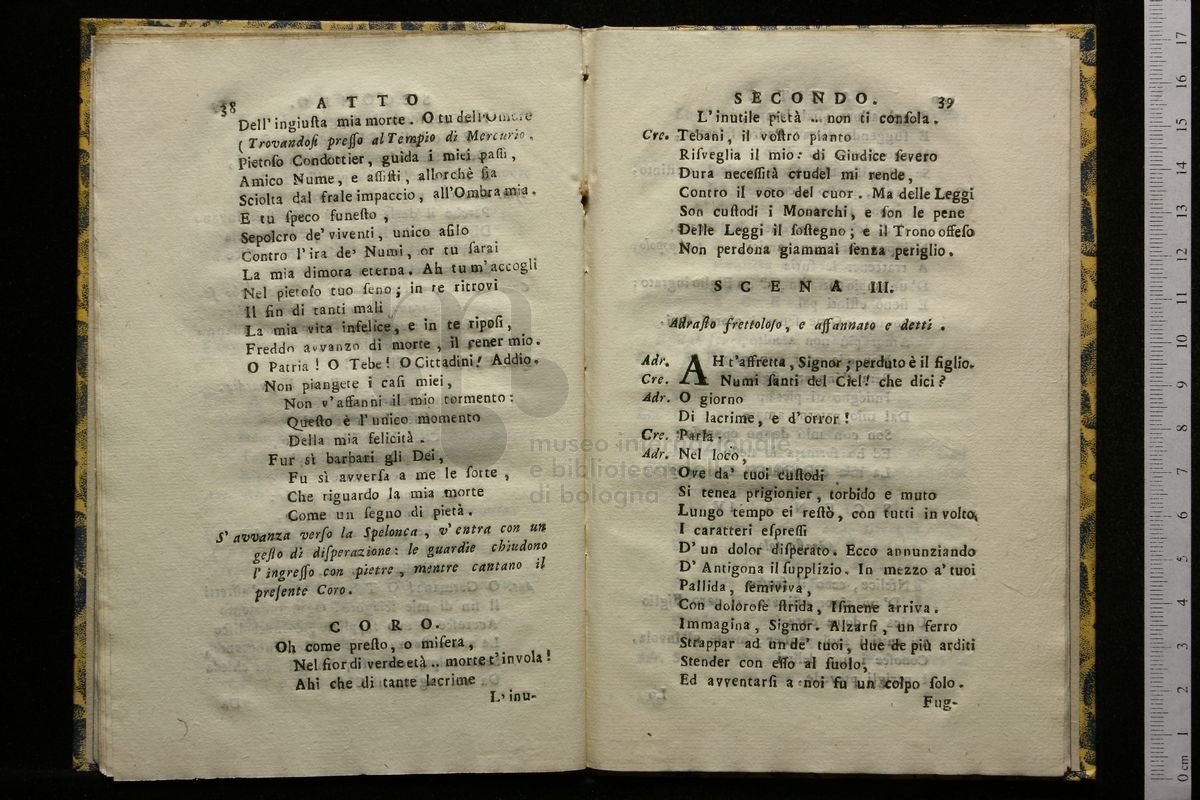 38 ATTO
Dell' ingiuſta mia morte. O tu dell'Ombre
(Trovandoſi preſſo al Tempio di Mercurio.
Pietoſo Condottier, guida i miei paſſi,
Amico Nume, e aſſiſti, allorchè ſia
Sciolta dal frale impaccio, all'Ombra mia.
E tu ſpeco funeſto,
Sepolcro de' viventi, unico aſilo
Contro l'ira de' Numi, or tu ſarai
La mia dimora eterna. Ah tu m'accogli
Nel pietoſo tuo ſeno; in te ritrovi
Il fin di tanti mali
La mia vita infelice, e in te ripoſi,
Freddo avvanzo di morte, il cener mio.
O Patria! O Tebe! O Cittadini! Addio.
Non piangete i caſi miei,
Non v'affanni il mio tormento:
Queſto è l'unico momento
Della mia felicità.
Fur sì barbari gli Dei,
Fu sì avverſa a me le ſorte,
Che riguardo la mia morte
Come un ſegno di pietà.
S' avvanza verſo la Spelonca, v' entra con un
geſto di diſperazione: le guardie chiudono
l' ingreſſo con pietre, mentre cantano il
preſente Coro.
CORO.
Oh come preſto, o miſera,
Nel fior di verde età .. morte t'invola!
Ahi che di tante lacrime
L'inu-
SECONDO. 39
L'inutile pietà .. non ti conſola.
Cre. Tebani, il voſtro pianto
Riſveglia il mio: di Giudice ſevero
Dura neceſſità crudel mi rende,
Contro il voto del cuor. Ma delle Leggi
Son cuſtodi i Monarchi, e ſon le pene
Delle Leggi il ſoſtegno; e il Trono offeſo
Non perdona giammai ſenza periglio.
SCENA III.
Adraſto frettoloſo, e affannato e detti.
Adr. AH t'affretta, Signor; perduto è il figlio.
Cre. Numi ſanti del Ciel! che dici?
Adr. O giorno
Di lacrime, e d'orror!
Cre. Parla.
Adr. Nel loco,
Ove da' tuoi cuſtodi
Si tenea prigionier, torbido e muto
Lungo tempo ei reſtò, con tutti in volto,
I caratteri eſpreſſi
D' un dolor diſperato. Ecco annunziando
D' Antigona il ſupplizio. In mezzo a' tuoi
Pallida, ſemiviva,
Con doloroſe ſtrida, Iſmene arriva.
Immagina, Signor. Alzarſi, un ferro
Strappar ad un de' tuoi, due de più arditi
Stender con eſſo al ſuolo,
Ed avventarſi a noi fu un colpo ſolo.
Fug-
museo internazionale
e biblioteca
di bologna
0 cm 1 2 3 4 5 6 7 8 9 10 11 12 13 14 15 16 17